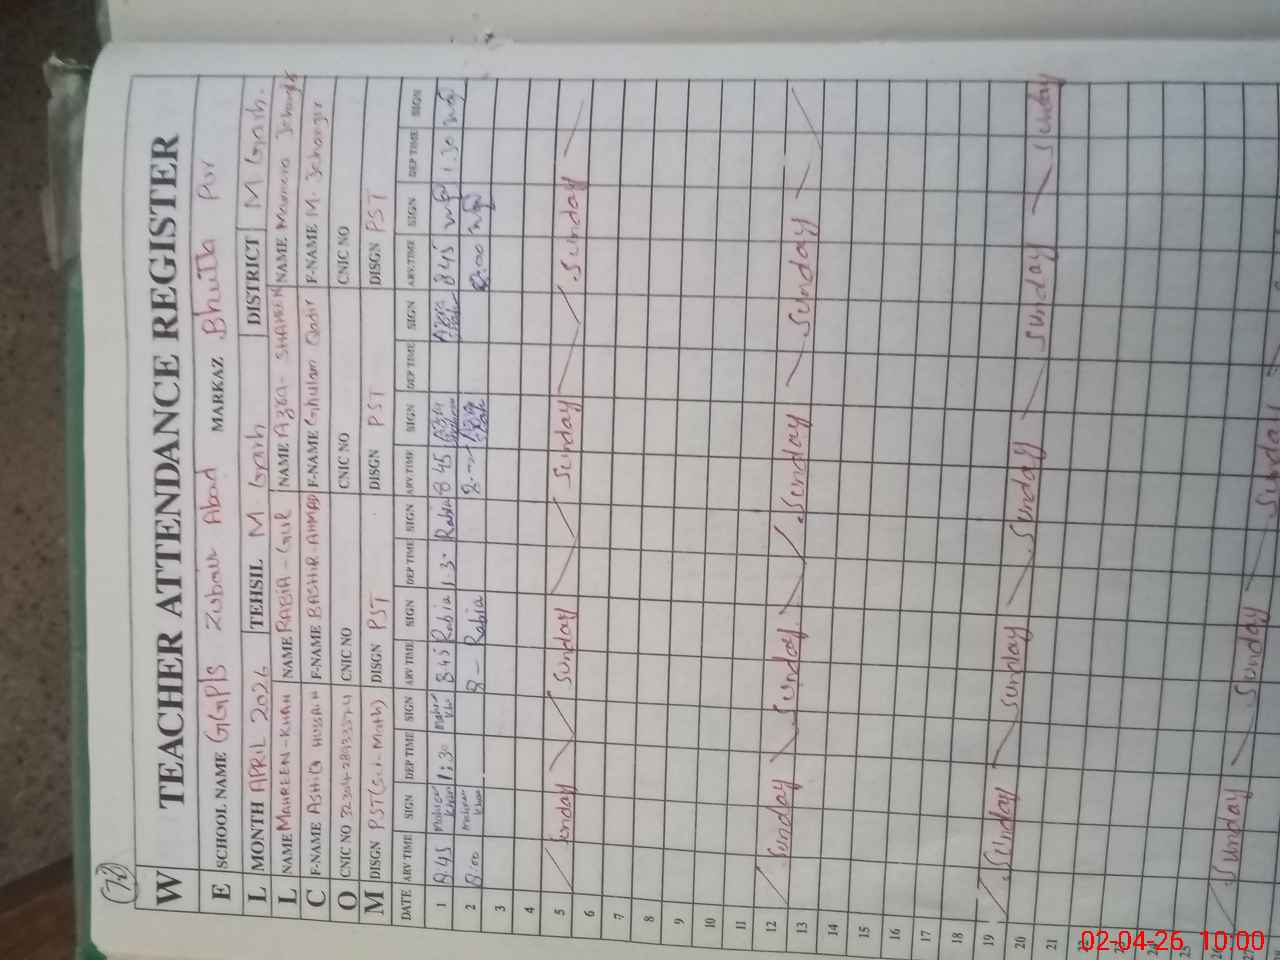 78
W TEACHER ATTENDANCE REGISTER
E SCHOOL NAME GGP/S Zubair Abad MARKAZ Bhutta Pur
L MONTH APRIL 2026 TEHSIL M Garh DISTRICT M Garh.
L NAME MAHREEN-KHAN NAME RABIA-GUL NAME AZRA-SHAHEEN NAME
C F-NAME ASHIQ HUSSAIN F-NAME BASHIR-AHMAD F-NAME Ghulam Qadir F-NAME M. Jehangir
O CNIC NO CNIC NO CNIC NO CNIC NO
M DISGN PST(Sci-Math) DISGN PST DISGN PST DISGN PST
DATE ARV TIME SIGN DEP TIME SIGN ARV TIME SIGN DEP TIME SIGN ARV TIME SIGN DEP TIME SIGN ARV TIME SIGN DEP TIME SIGN
1 8.45 Mahreen Khan 1:30 8.45 Rabia 1.3- Rabia 8.45 Azra 8 45 1.30
2 8:00 Mahreen Khan 8- Rabia 8-
3
4
5 Sunday Sunday Sunday Sunday
6
7
8
9
10
11
12 Sunday Sunday Sunday Sunday
13
14
15
16
17
18
19 Sunday Sunday Sunday Sunday Sunday
20
21
22
23
24
25
26 Sunday Sunday Sunday
27
02-04-26 10:00